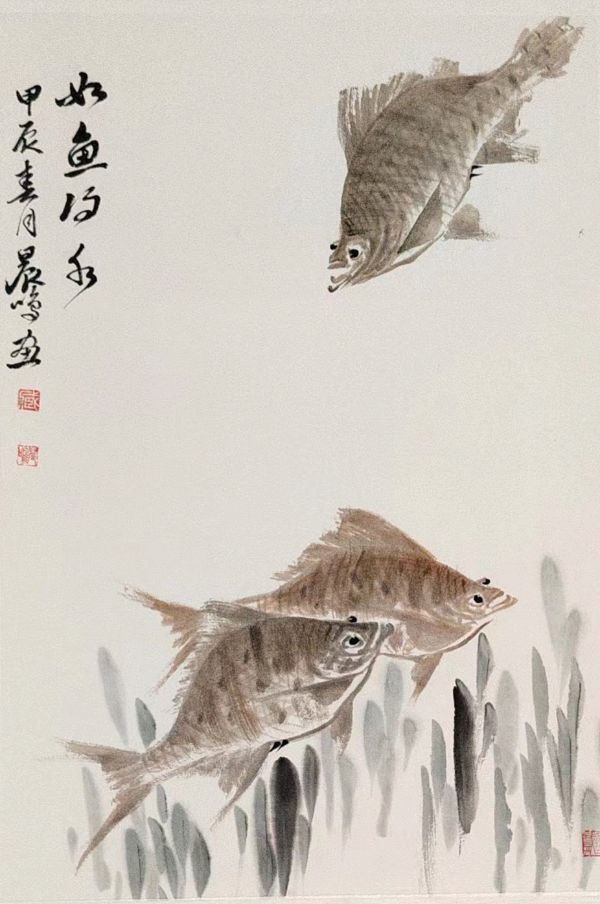 如鱼得水
甲辰春月晨鸣画